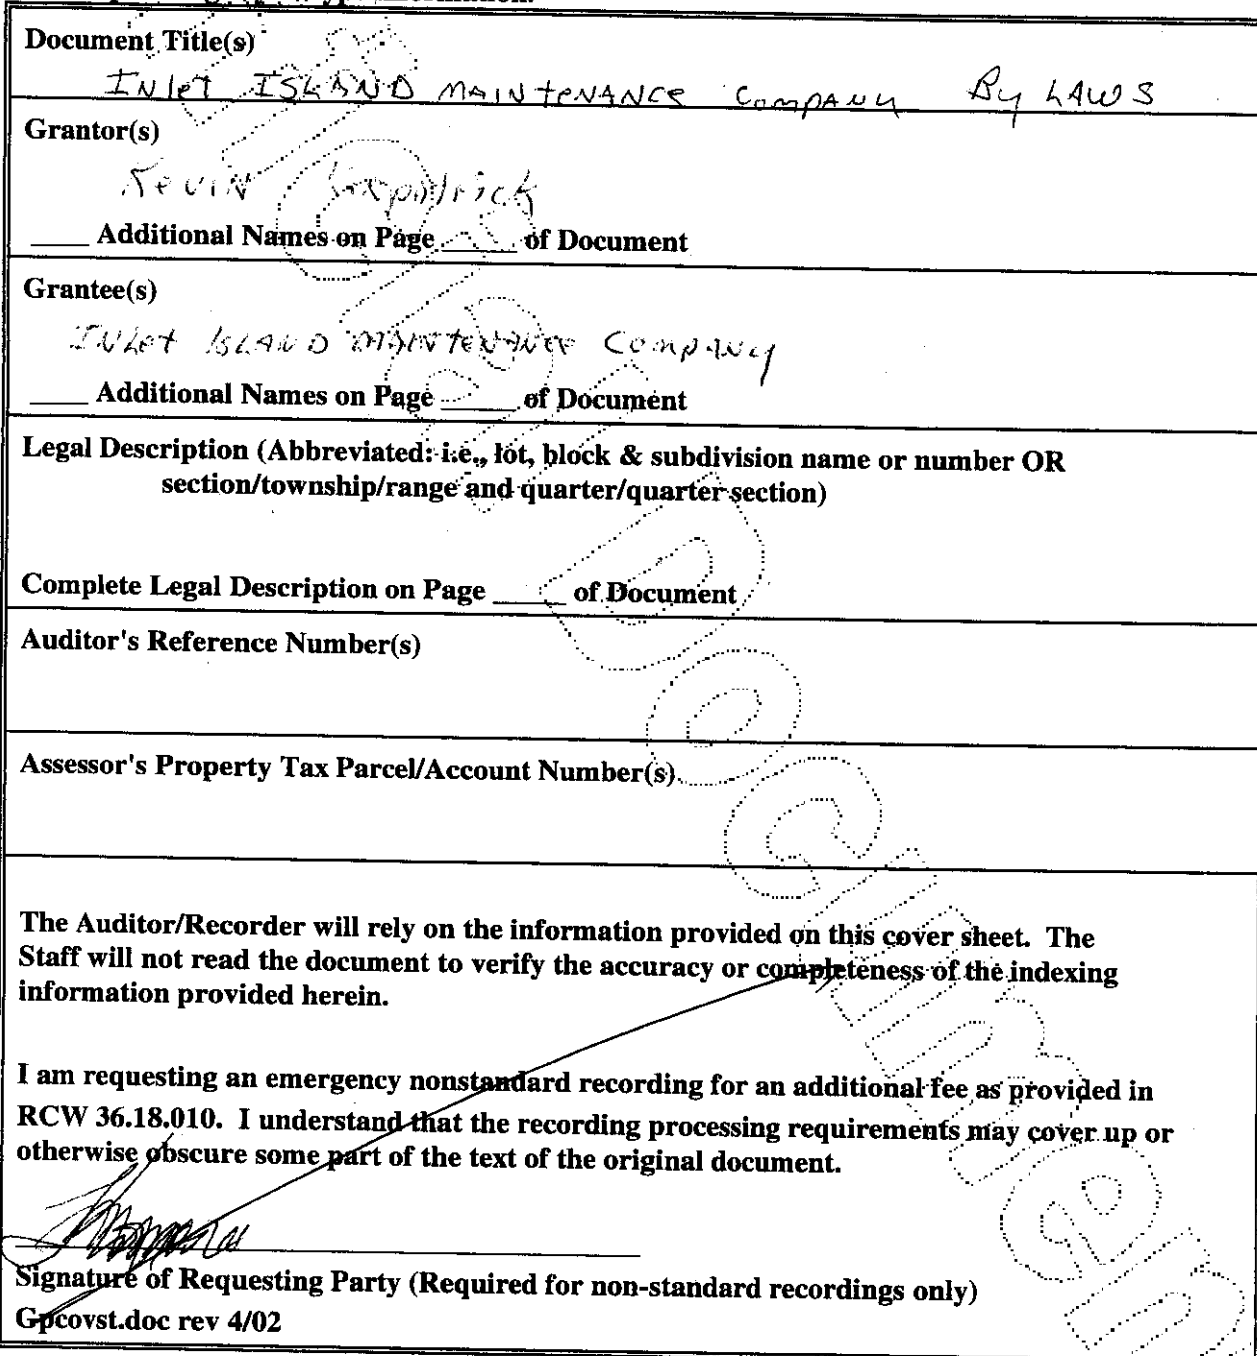 Document Title(s)
INlet ISLAND MAINTENANCE COMPANY By LAWS
Grantor(s)
Kevin
____ Additional Names on Page ____ of Document
Grantee(s)
INLet ISLAND MAINTENANCE COMPANY
____ Additional Names on Page ____ of Document
Legal Description (Abbreviated: i.e., lot, block & subdivision name or number OR
section/township/range and quarter/quarter section)
Complete Legal Description on Page ____ of Document
Auditor's Reference Number(s)
Assessor's Property Tax Parcel/Account Number(s)
The Auditor/Recorder will rely on the information provided on this cover sheet. The
Staff will not read the document to verify the accuracy or completeness of the indexing
information provided herein.
I am requesting an emergency nonstandard recording for an additional fee as provided in
RCW 36.18.010. I understand that the recording processing requirements may cover up or
otherwise obscure some part of the text of the original document.
Signature of Requesting Party (Required for non-standard recordings only)
Gpcovst.doc rev 4/02